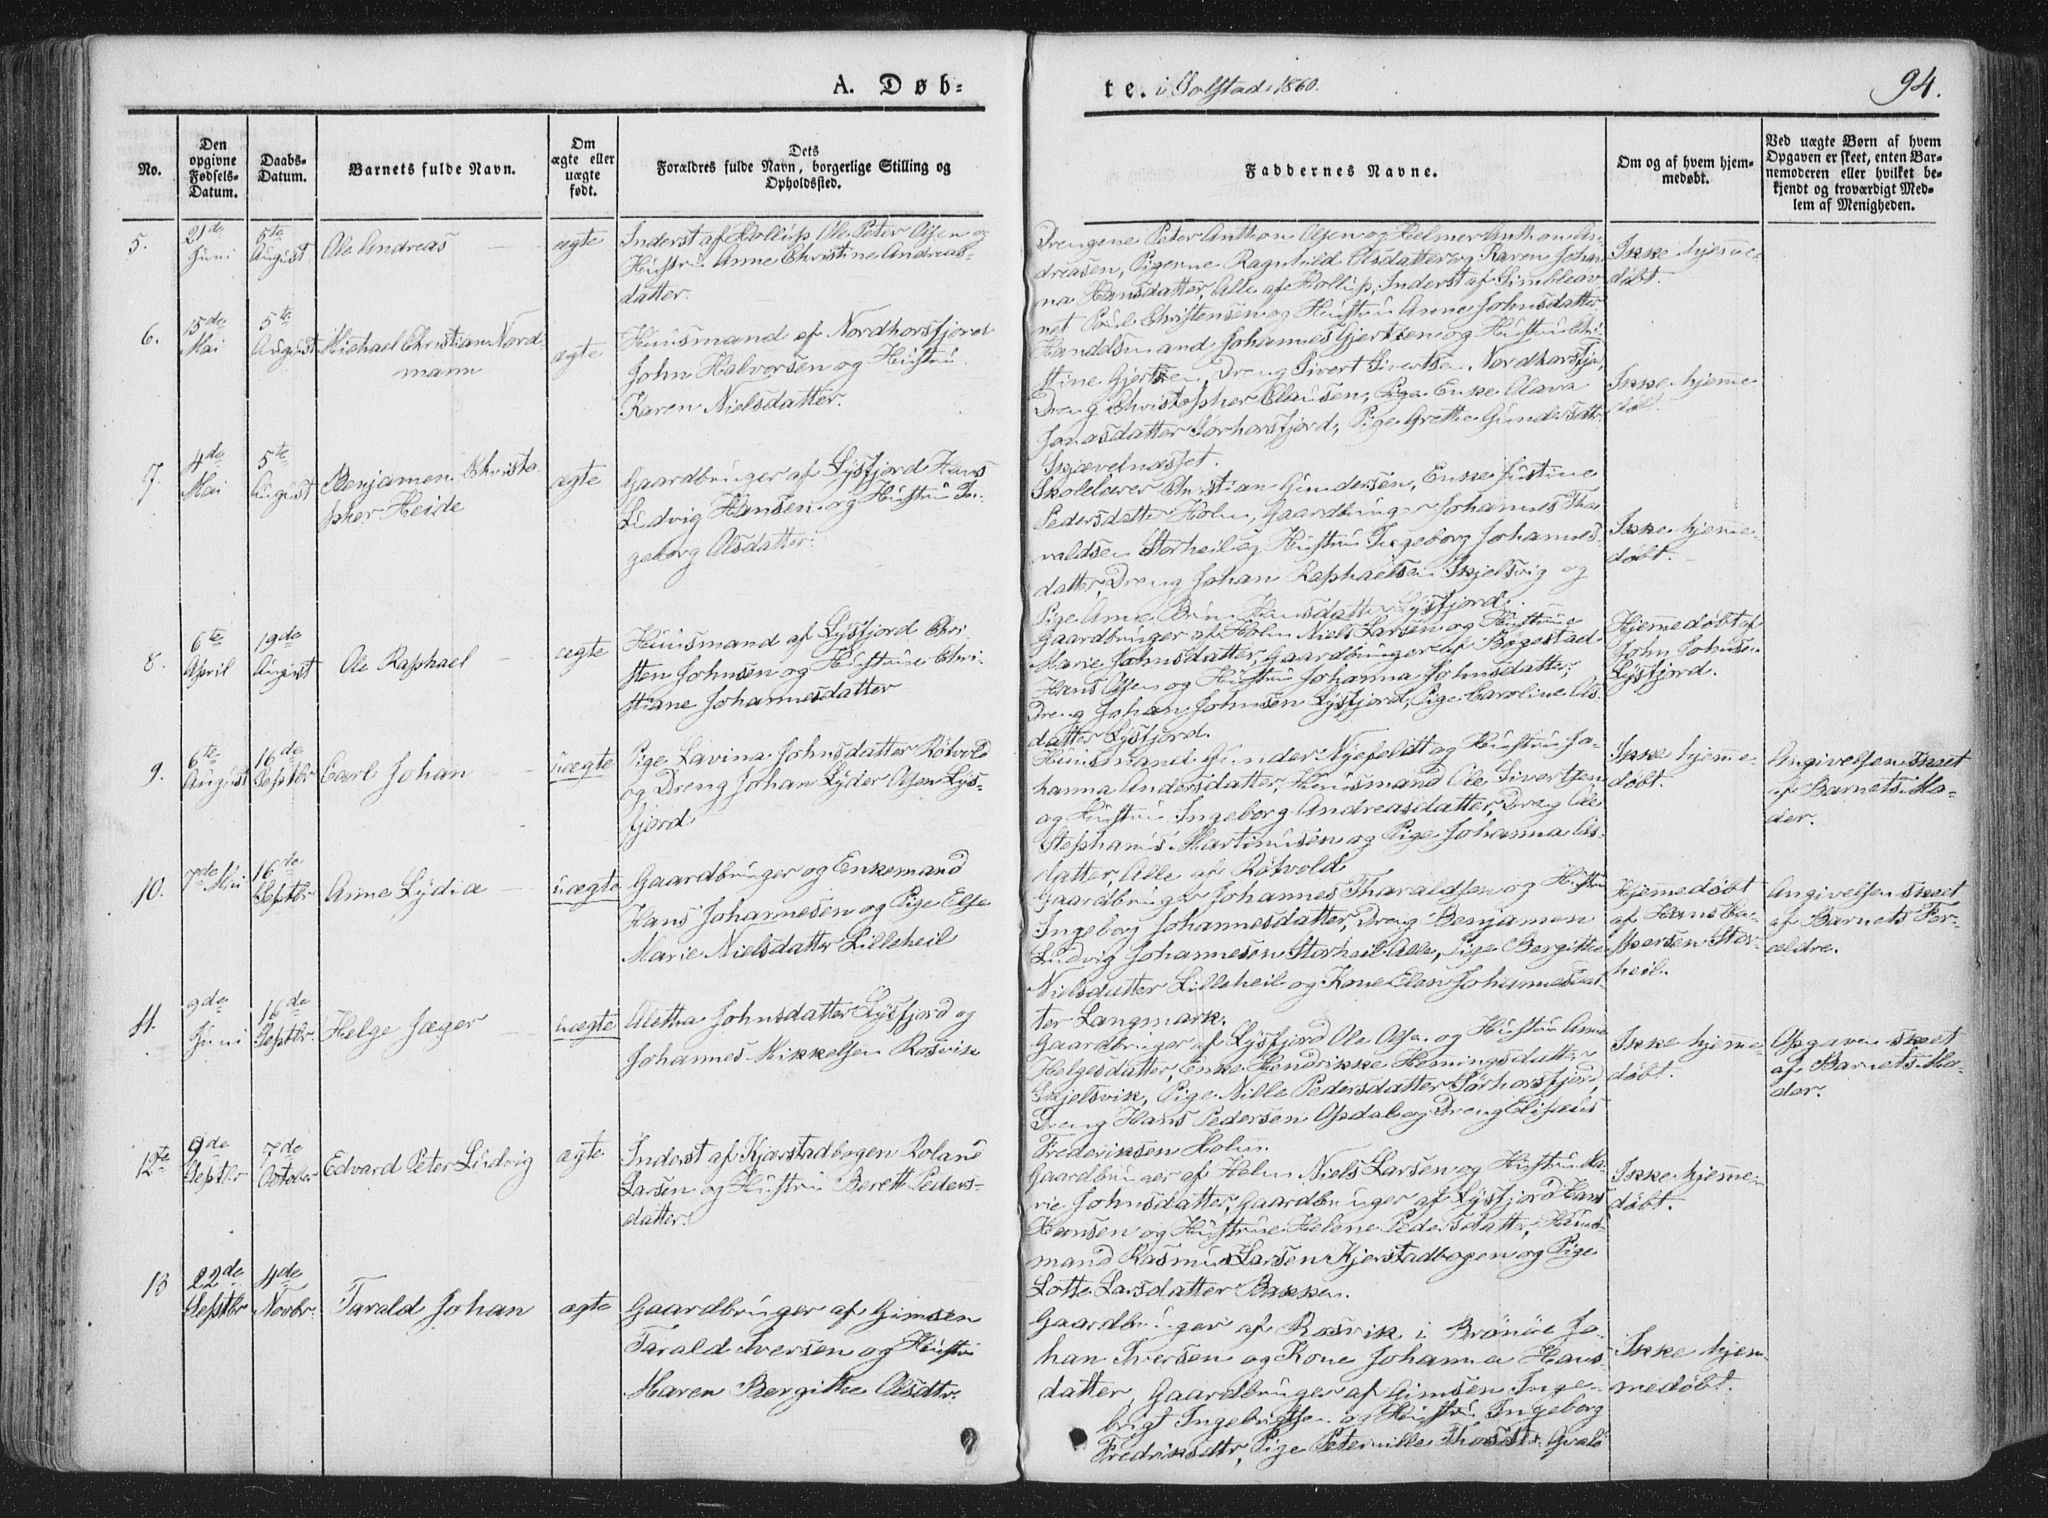 A. Døb-
te. i Solstad 1860.
94.
No.
Den opgivne Fødsels-Datum.
Daabs-Datum.
Barnets fulde Navn.
Om ægte eller uægte født.
Dets Forældres fulde Navn, borgerlige Stilling og Opholdssted.
Faddernes Navne.
Om og af hvem hjemmedøbt.
Ved uægte Børn af hvem Opgaven er skeet, enten Barnemoderen eller hvilket bekjendt og troværdigt Medlem af Menigheden.
5.
21de Juni
5te August
Ole Andreas
ægte
Inderst af Hollup Ole Peter Olsen og
Hustru Anne Christine Andreas-
datter.
Drengene Peter Anthon Olsen og Helmer Anthon An-
dreasen, Pigerne Ragnhild Olsdatter og Karen Johan
na Hansdatter, Alle af Hollup, Inderst af Simleav
net Poul Christensen og Hustru Anne Johnsdatter
Ikke hjemme-
døbt.
6.
15de Mai
5te August
Michael Christian Nord-
mann
ægte
Huusmand af Nordhorsfjord
John Halvorsen og Hustru
Karen Nielsdatter.
Handelsmand Johannes Gjertsen og Hustru Chri
stine Gjertsen, Dreng Sivert Sivertsen, Nordhorsfjo,
Dreng Christopher Clausen, Pige Enke Olava
Jonasdatter Sørhorsfjord, Pige Grethe Gundersdtr
Skjævelnæsset.
Ikke hjemme
døbt.
7.
4de Mai
5te August
Benjamen Christo
pher Heide
ægte
Gaardbruger af Lysfjord Hans
Ludvig Hansen og Hustru In-
geborg Olsdatter.
Skolelærer Christian Gundersen, Enke Justine
Pedersdatter Holm, Gaardbruger Johannes Tha
raldsen Storheil og Hustru Ingeborg Johannes-
datter, Dreng Johan Raphaelsen Skjelsvig og
Pige Anne Hansdatter Lysfjord.
Ikke hjemme-
døbt.
8.
6te April
19de August
Ole Raphael
ægte
Huusmand af Lysfjord Chri-
sten Johnsen og Hustrue Chri-
stiane Johannesdatter
Gaardbruger af Holm Niels Larsen og Hustrue
Marie Johnsdatter, Gaardbruger af Bøgestad
Hans Olsen og Hustru Johanna Johnsdatter,
Dreng Johan Johnsen Lysfjord, Pige Caroline Ols-
datter Lysfjord.
Hjemmedøbt af
John Johnsen
Lysfjord.
9.
6te August
16de Septbr
Carl Johan
uægte
Pige Lavina Johnsdatter Røtvold
og Dreng Johan Lyder Olsen Lys-
fjord
Huusmand Gunder Nyefeldt og Hustru Jo-
hanna Andersdatter, Huusmand Ole Sivertsen
og Hustru Ingeborg Andreasdatter, Dreng Ole
Stephanus Martinusen og Pige Johanna Ols-
datter Alle af Røtvold.
Ikke hjemme-
døbt.
Angivelsen skeet
af Barnets Mo-
der.
10.
7de Mai
16de Septbr
Anne Lydia
uægte
Gaardbruger og Enkemand
Hans Johannesen og Pige Else
Marie Nielsdatter Lilleheil
Gaardbruger Johannes Tharaldsen og Hustru
Ingeborg Johannesdatter, Dreng Benjamen
Ludvig Johannesen Storheil Alle, Pige Bergitte
Nielsdatter Lilleheil og Kone Elen Johannesdat-
ter Langmark.
Hjemmedøbt
af Hans
Storheil.
Angivelsen skeet
af Barnets For-
ældre.
11.
9de Juni
16de Septbr.
Helge Jæger
uægte
Aletha Johnsdatter Lysfjord og
Johannes Mikkelsen Rosvik
Gaardbruger af Lysfjord Ole Olsen og Hustru Anne
Helgesdatter, Enke Hendrikke Hemingsdatter
Skjelsvik, Pige Nille Pedersdatter Sørhorsfjord,
Dreng Hans Pedersen Opdal og Dreng Elisæus
Frederiksen Holm.
Ikke hjemme-
døbt.
Opgaven skeet
af Barnets Mo-
der.
12te
9de Septbr
7de October
Edvard Peter Ludvig
ægte
Inderst af Kjærstadbogen Roland
Larsen og Hustru Berett Peders-
datter.
Gaardbruger af Holm Niels Larsen og Hustru Ma-
rie Johnsdatter, Gaardbruger af Lysfjord Hans
Hansen og Hustrue Helene Pedersdatter, Huus-
mand Rasmus Larsen Kjerstadbogen og Pige
Lotte Larsdatter Bakken.
Ikke hjemme-
døbt.
13
22de Septbr
4de Novbr.
Tarald Johan
ægte
Gaardbruger af Gimsen
Tarald Iversen og Hustru
Maren Bergithe Olsdtr.
Gaardbruger af Rosvik i Brönöe Jo-
han Iversen og Kone Johanna Hans-
datter, Gaardbruger af Gimsen Inge-
brigt Ingebrigtsen og Hustru Ingeborg
Fredriksdtr, Pige Peterville Qvalø
Ikke hjem-
medøbt.